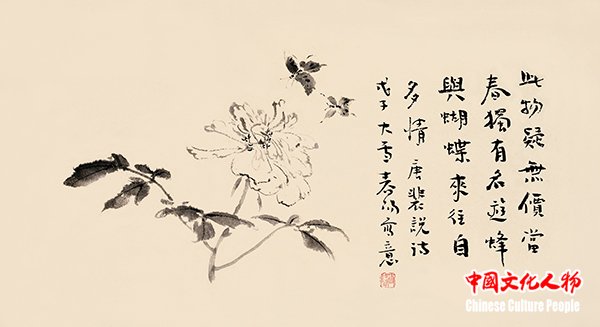 此物疑無價當
春獨有名遊蜂
與蝴蝶來往自
多情 唐裴說詩
戊子大雪春寫意
中國文化人物
Chinese Culture People